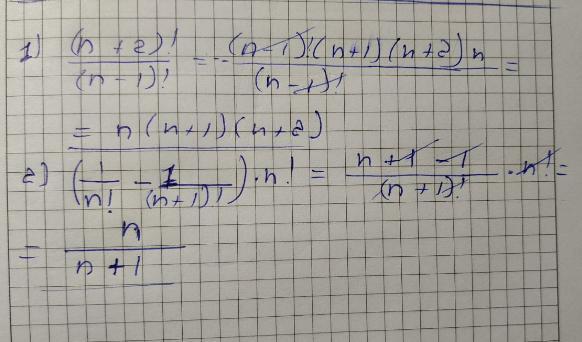 1) (n + 2)! / (n - 1)! = (n - 1)! (n+1) (n+2) n / (n - 1)! =
= n (n+1) (n+2)
2) (1/n! - 1/(n+1)!) · n! = (n + 1 - 1)/(n + 1)! · n! =
= n / (n + 1)